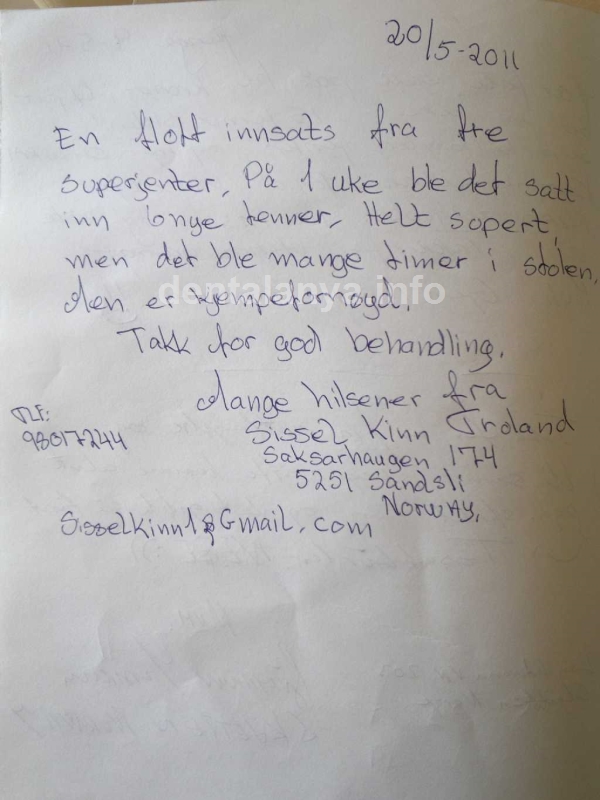 20/5-2011
En flott innsats fra tre
superjenter, På 1 uke ble det satt
inn nye tenner, Helt supert,
men det ble mange timer i stolen,
dentalanya.info
Men er kjempefornøyd.
Takk for god behandling.
Mange hilsener fra
TLF:
98017244
Sissel Kinn Troland
Saksarhaugen 174
5251 Sandsli
Norway,
Sisselkinn1@Gmail.com